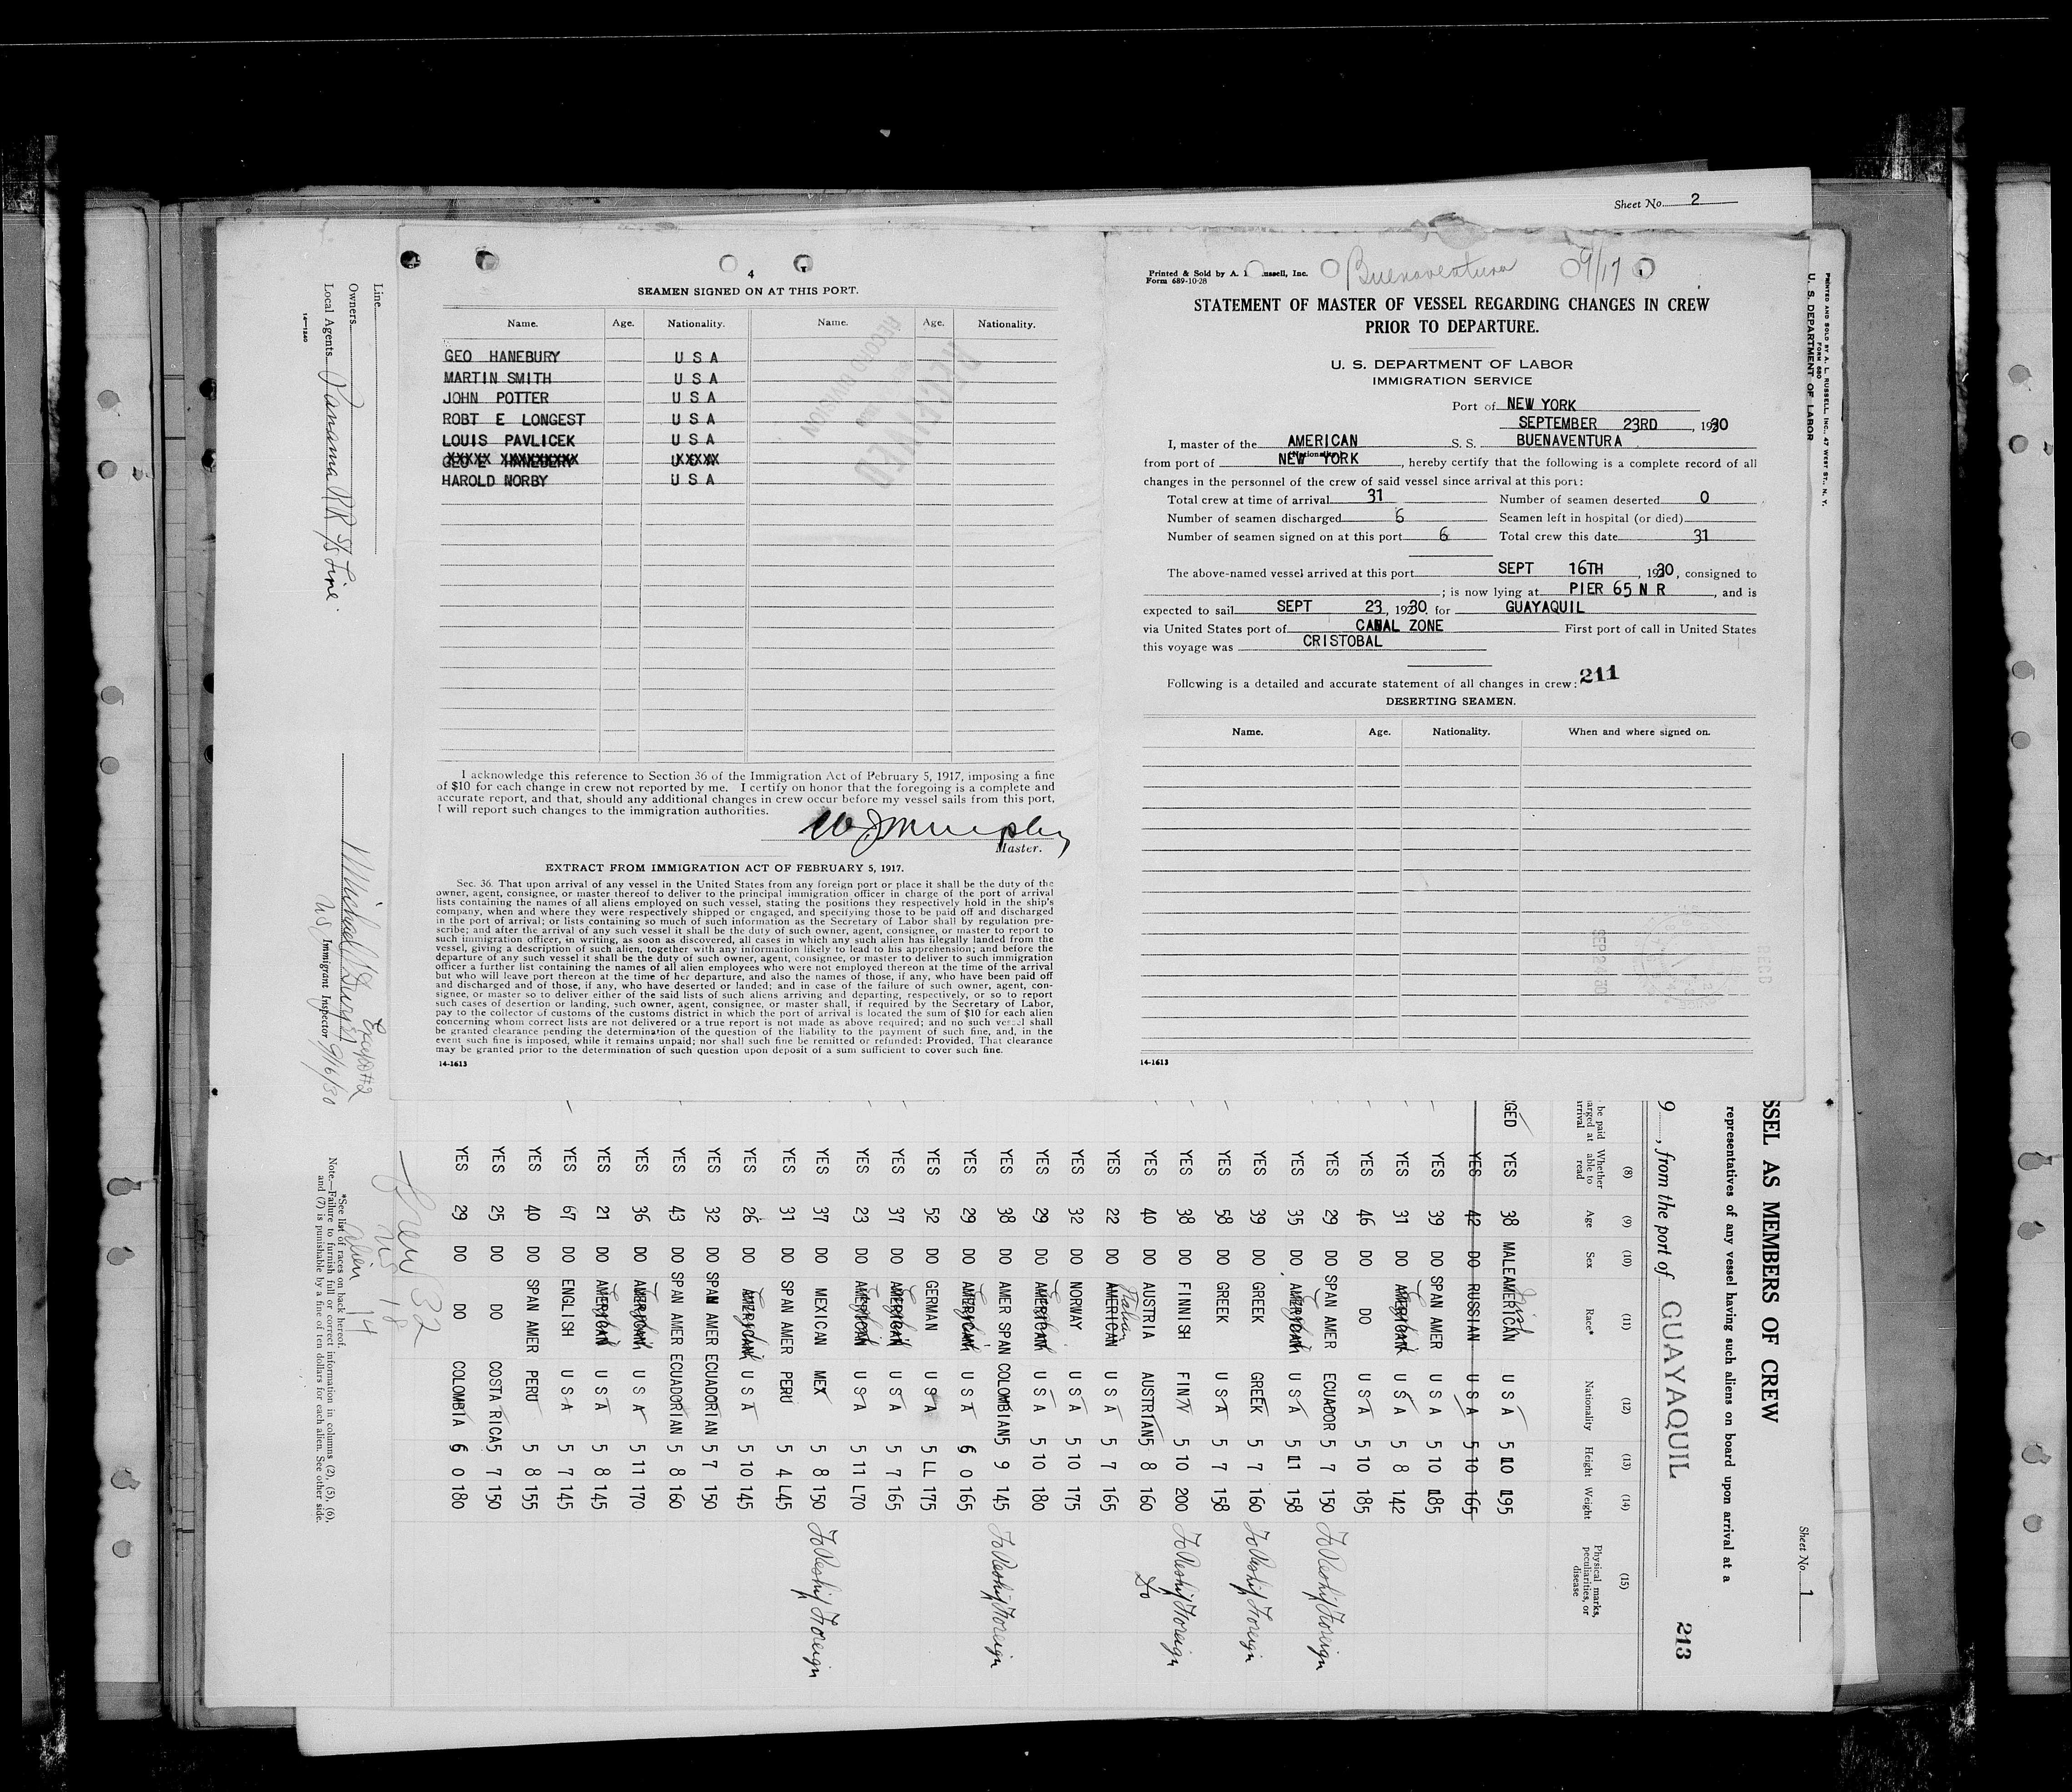 Sheet No. 2
4
SEAMEN SIGNED ON AT THIS PORT.
Name. Age. Nationality. Name. Age. Nationality.
GEO HANEBURY U S A
MARTIN SMITH U S A
JOHN POTTER U S A
ROBT E LONGEST U S A
LOUIS PAVLICEK U S A
GEO E HANEBERY U S A
HAROLD NORBY U S A
RECORD DIVISION
RECEIVED
I acknowledge this reference to Section 36 of the Immigration Act of February 5, 1917, imposing a fine
of $10 for each change in crew not reported by me. I certify on honor that the foregoing is a complete and
accurate report, and that, should any additional changes in crew occur before my vessel sails from this port,
I will report such changes to the immigration authorities.
W J Murphy
Master.
EXTRACT FROM IMMIGRATION ACT OF FEBRUARY 5, 1917.
Sec. 36. That upon arrival of any vessel in the United States from any foreign port or place it shall be the duty of the
owner, agent, consignee, or master thereof to deliver to the principal immigration officer in charge of the port of arrival
lists containing the names of all aliens employed on such vessel, stating the positions they respectively hold in the ship's
company, when and where they were respectively shipped or engaged, and specifying those to be paid off and discharged
in the port of arrival; or lists containing so much of such information as the Secretary of Labor shall by regulation pre-
scribe; and after the arrival of any such vessel it shall be the duty of such owner, agent, consignee, or master to report to
such immigration officer, in writing, as soon as discovered, all cases in which any such alien has illegally landed from the
vessel, giving a description of such alien, together with any information likely to lead to his apprehension; and before the
departure of any such vessel it shall be the duty of such owner, agent, consignee, or master to deliver to such immigration
officer a further list containing the names of all alien employees who were not employed thereon at the time of the arrival
but who will leave port thereon at the time of her departure, and also the names of those, if any, who have been paid off
and discharged and of those, if any, who have deserted or landed; and in case of the failure of such owner, agent, con-
signee, or master so to deliver either of the said lists of such aliens arriving and departing, respectively, or so to report
such cases of desertion or landing, such owner, agent, consignee, or master shall, if required by the Secretary of Labor,
pay to the collector of customs of the customs district in which the port of arrival is located the sum of $10 for each alien
concerning whom correct lists are not delivered or a true report is not made as above required; and no such vessel shall
be granted clearance pending the determination of the question of the liability to the payment of such fine, and, in the
event such fine is imposed, while it remains unpaid; nor shall such fine be remitted or refunded: Provided, That clearance
may be granted prior to the determination of such question upon deposit of a sum sufficient to cover such fine.
14-1613
Printed & Sold by A. L. Russell, Inc.
Form 689-10-28
Buenaventura 9/17
STATEMENT OF MASTER OF VESSEL REGARDING CHANGES IN CREW
PRIOR TO DEPARTURE.
U. S. DEPARTMENT OF LABOR
IMMIGRATION SERVICE
Port of NEW YORK
SEPTEMBER 23RD, 1930
I, master of the AMERICAN S. S. BUENAVENTURA
(Nationality)
from port of NEW YORK, hereby certify that the following is a complete record of all
changes in the personnel of the crew of said vessel since arrival at this port:
Total crew at time of arrival 31 Number of seamen deserted 0
Number of seamen discharged 6 Seamen left in hospital (or died)
Number of seamen signed on at this port 6 Total crew this date 31
The above-named vessel arrived at this port SEPT 16TH, 1930, consigned to
; is now lying at PIER 65 N R, and is
expected to sail SEPT 23, 1930 for GUAYAQUIL
via United States port of CANAL ZONE First port of call in United States
this voyage was CRISTOBAL
Following is a detailed and accurate statement of all changes in crew: 211
DESERTING SEAMEN.
Name. Age. Nationality. When and where signed on.
SEP 24 30
RECD
14-1613
PRINTED AND SOLD BY A. L. RUSSELL, INC., 47 WEST ST., N. Y.
FORM 680
U. S. DEPARTMENT OF LABOR
Sheet No. 1
SSEL AS MEMBERS OF CREW
representatives of any vessel having such aliens on board upon arrival at a
9, from the port of GUAYAQUIL
213
(8) (9) (10) (11) (12) (13) (14) (15)
be paid
arged at
arrival
Whether able to read Age Sex Race* Nationality Height Weight Physical marks, peculiarities, or disease
GED YES 38 MALE AMERICAN Irish U S A 5 10 195
YES 42 DO RUSSIAN U S A 5 10 165
YES 39 DO SPAN AMER U S A 5 10 185
YES 31 DO AMERICAN English U S A 5 8 142
YES 46 DO DO U S A 5 10 185
YES 29 DO SPAN AMER ECUADOR 5 7 150 To Reship Foreign
YES 35 DO AMERICAN English U S A 5 11 158
YES 39 DO GREEK GREEK 5 7 160 To Reship Foreign
YES 58 DO GREEK U S A 5 7 158
YES 38 DO FINNISH FINN 5 10 200 To Reship Foreign
YES 40 DO AUSTRIA AUSTRIAN 5 8 160 Do
YES 22 DO AMERICAN Italian U S A 5 7 165
YES 32 DO NORWAY U S A 5 10 175
YES 29 DO AMERICAN English U S A 5 10 180
YES 38 DO AMER SPAN COLOMBIAN 5 9 145 To Reship Foreign
YES 29 DO AMERICAN English U S A 6 0 165
YES 52 DO GERMAN U S A 5 LL 175
YES 37 DO AMERICAN English U S A 5 7 165
YES 23 DO AMERICAN English U S A 5 11 L70
YES 37 DO MEXICAN MEX 5 8 150 To Reship Foreign
YES 31 DO SPAN AMER PERU 5 4 L45
YES 26 DO AMERICAN English U S A 5 10 145
YES 32 DO SPAN AMER ECUADORIAN 5 7 150
YES 43 DO SPAN AMER ECUADORIAN 5 8 160
YES 36 DO AMERICAN English U S A 5 11 170
YES 21 DO AMERICAN English U S A 5 8 145
YES 67 DO ENGLISH U S A 5 7 145
YES 40 DO SPAN AMER PERU 5 8 155
YES 25 DO DO COSTA RICA 5 7 150
YES 29 DO DO COLOMBIA 6 0 180
Crew 32
US 18
Alien 14
*See list of races on back hereof.
Note.—Failure to furnish full or correct information in columns (2), (5), (6),
and (7) is punishable by a fine of ten dollars for each alien. See other side.
Line
Owners
Local Agents Panama RR S/S Line.
14-1240
US Immigrant Inspector 9/16/30